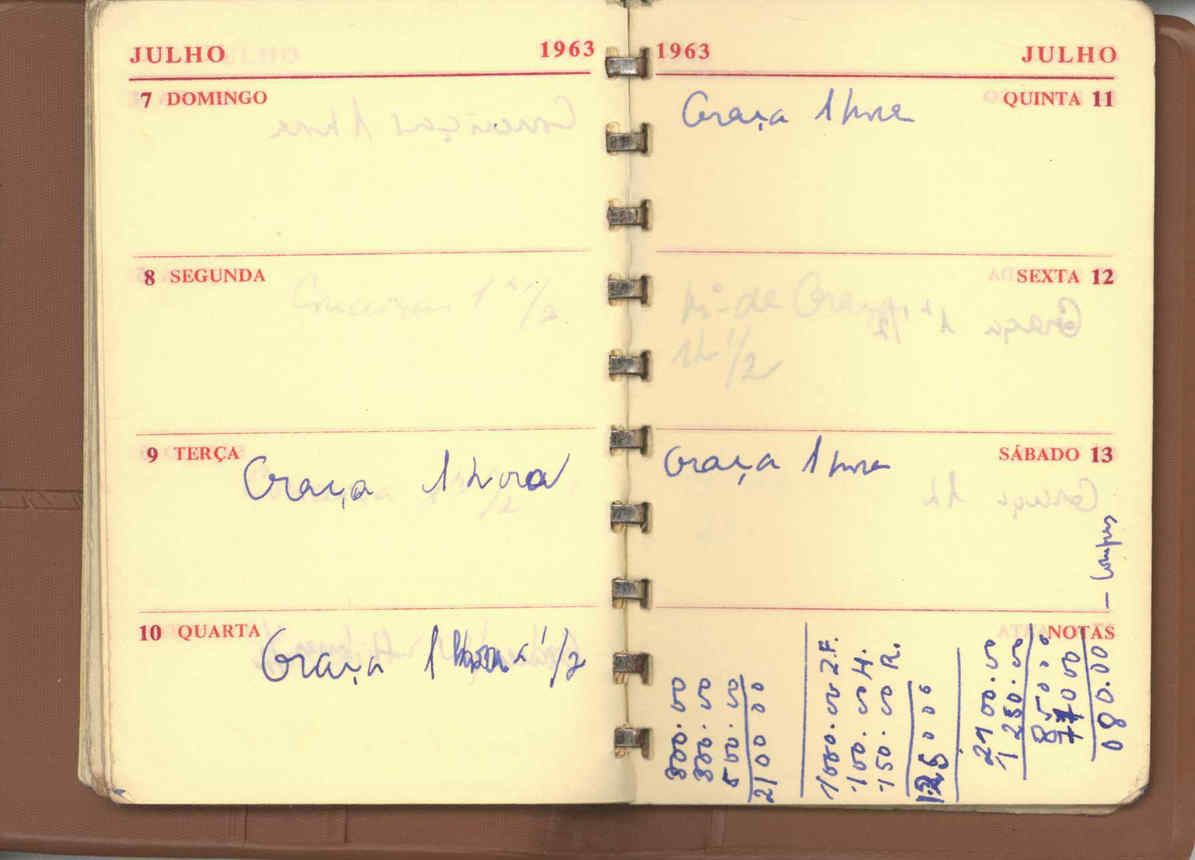 JULHO 1963
7 DOMINGO
8 SEGUNDA
9 TERÇA
Graça 1 hora
10 QUARTA
Graça 1 hora e 1/2
1963 JULHO
QUINTA 11
Graça 1 hora
SEXTA 12
Mª de Graça
1h 1/2
SÁBADO 13
Graça 1 hora
NOTAS
800.00
800.00
500.00
2100 00
1000.00 Z.F.
100.00 H.
150.00 R.
2100.00
1250.00
850 00
770 00
080.00 — Compras